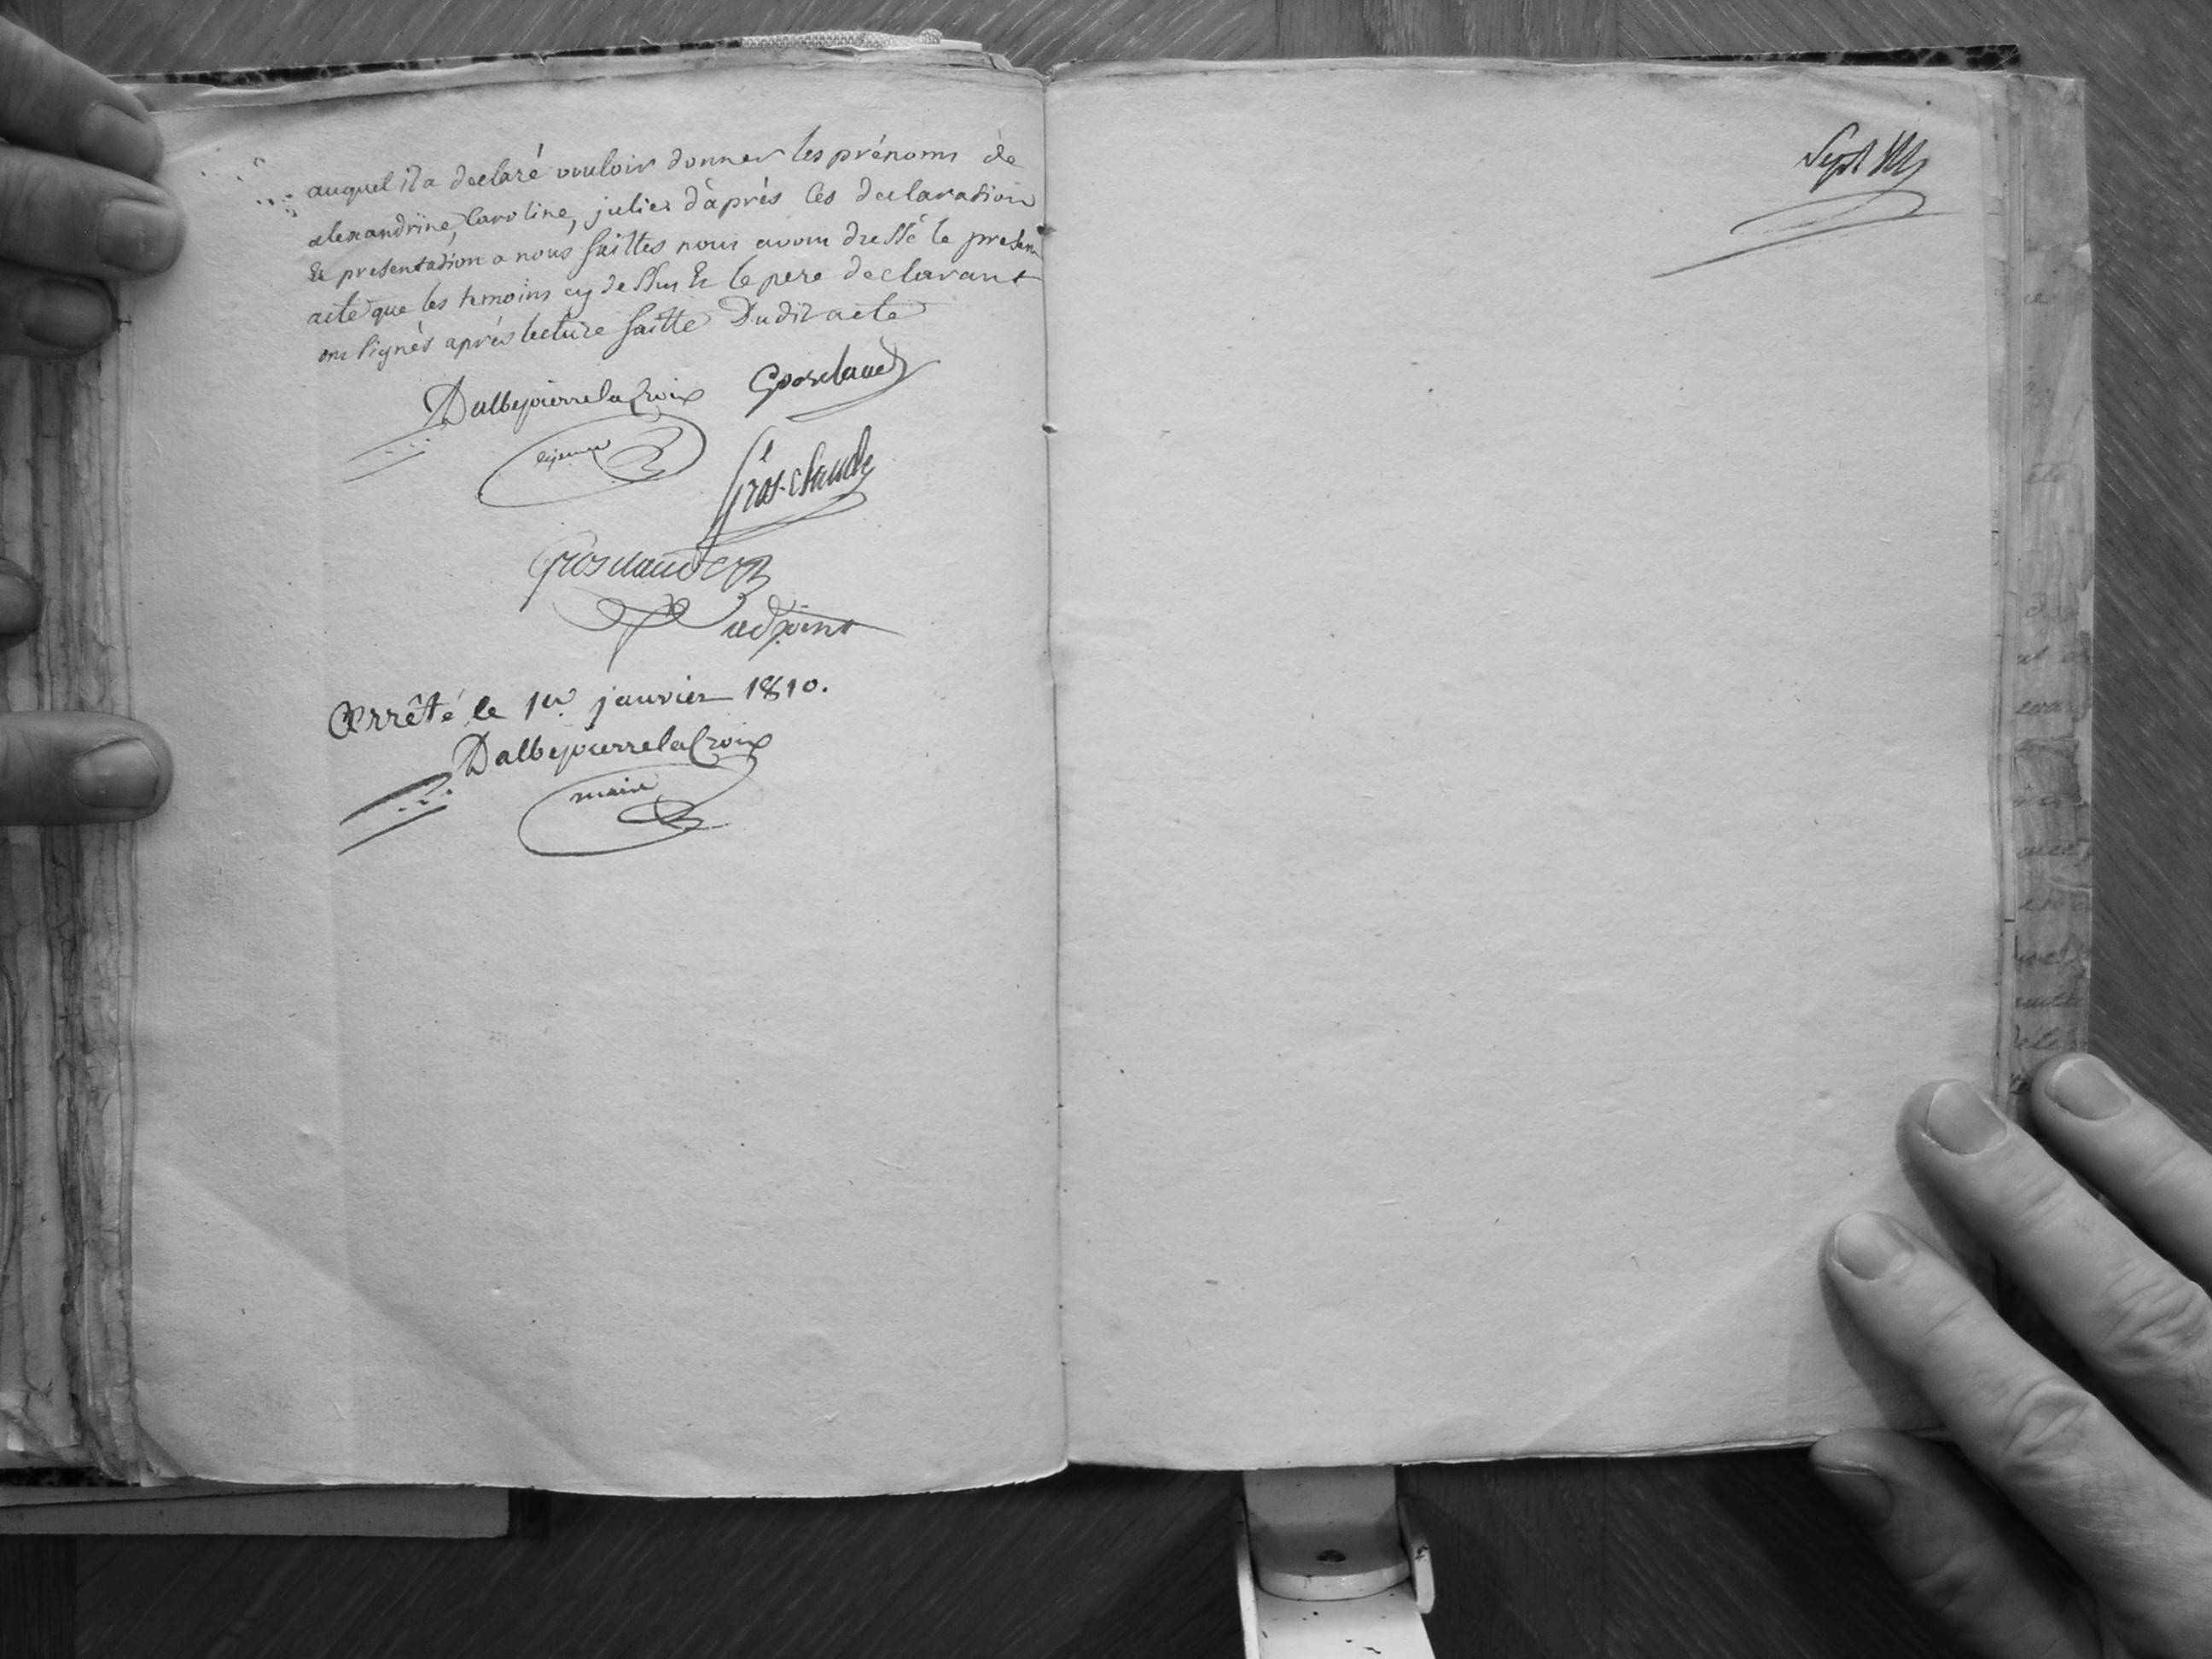 auquel il a declaré vouloir donner les prénoms de
alexandrine, Caroline, julie, d'àprés les declaration
& presentation a nous faittes nous avons dressé le present
acte que les temoins cy dessus & le pere declarant
ont signés aprés lecture faitte Dudit acte
Dalbepierrelacroix Grosclaude
Grosclaude
Grosclaude
adjoint
Arrêté le 1er janvier 1810.
Dalbepierrelacroix
maire
Sept